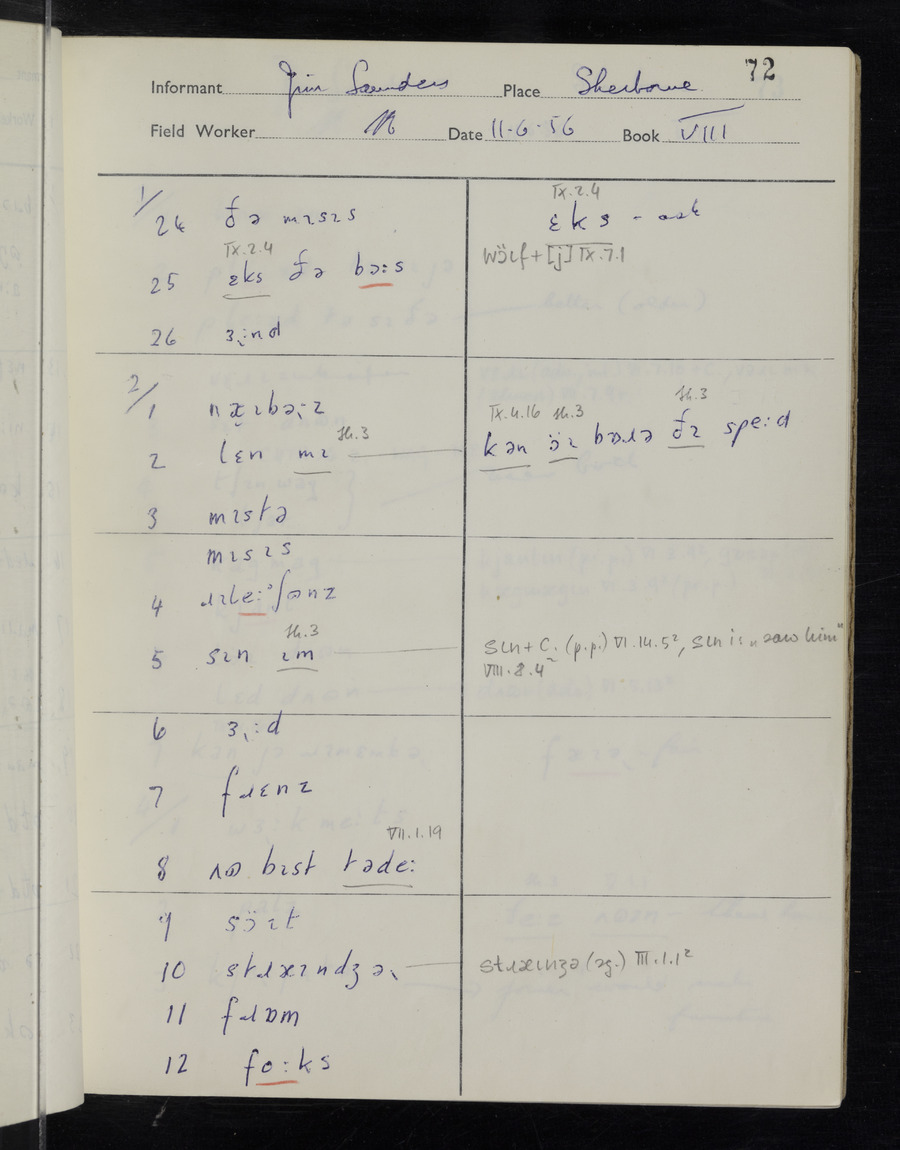 72
Informant Jim Saunders Place Sherborne
Field Worker Date 11-6-56 Book VIII
1/
24 ðə mɪsɪs
IX.2.4
ɛks - ask
IX.2.4
25 ɛks ðə bɔ:s
wöɪf+[j] IX.7.1
26 ɜ˞:nd
2/
1 næɪbə˞:z
2 lɛn mɪ St.3
IX.4.16 St.3 St.3
kən öɪ bɒɹə ðɪ spe:d
3 mɪstə
mɪsɪs
4 ɹɪle:ᵊʃənz
St.3
5 sɪn ɪm
sɪn+C. (p.p.) VI.14.5², sɪn is "saw him"
VIII.8.4²
6 ɜ˞:d
7 fɹɛnz
VII.1.19
8 ʌʊ bɪst təde:
9 söɪt
10 stɹæɪndʒə˞
stɹæɪnʒə (sg.) III.1.1²
11 fɹɒm
12 fo:ks